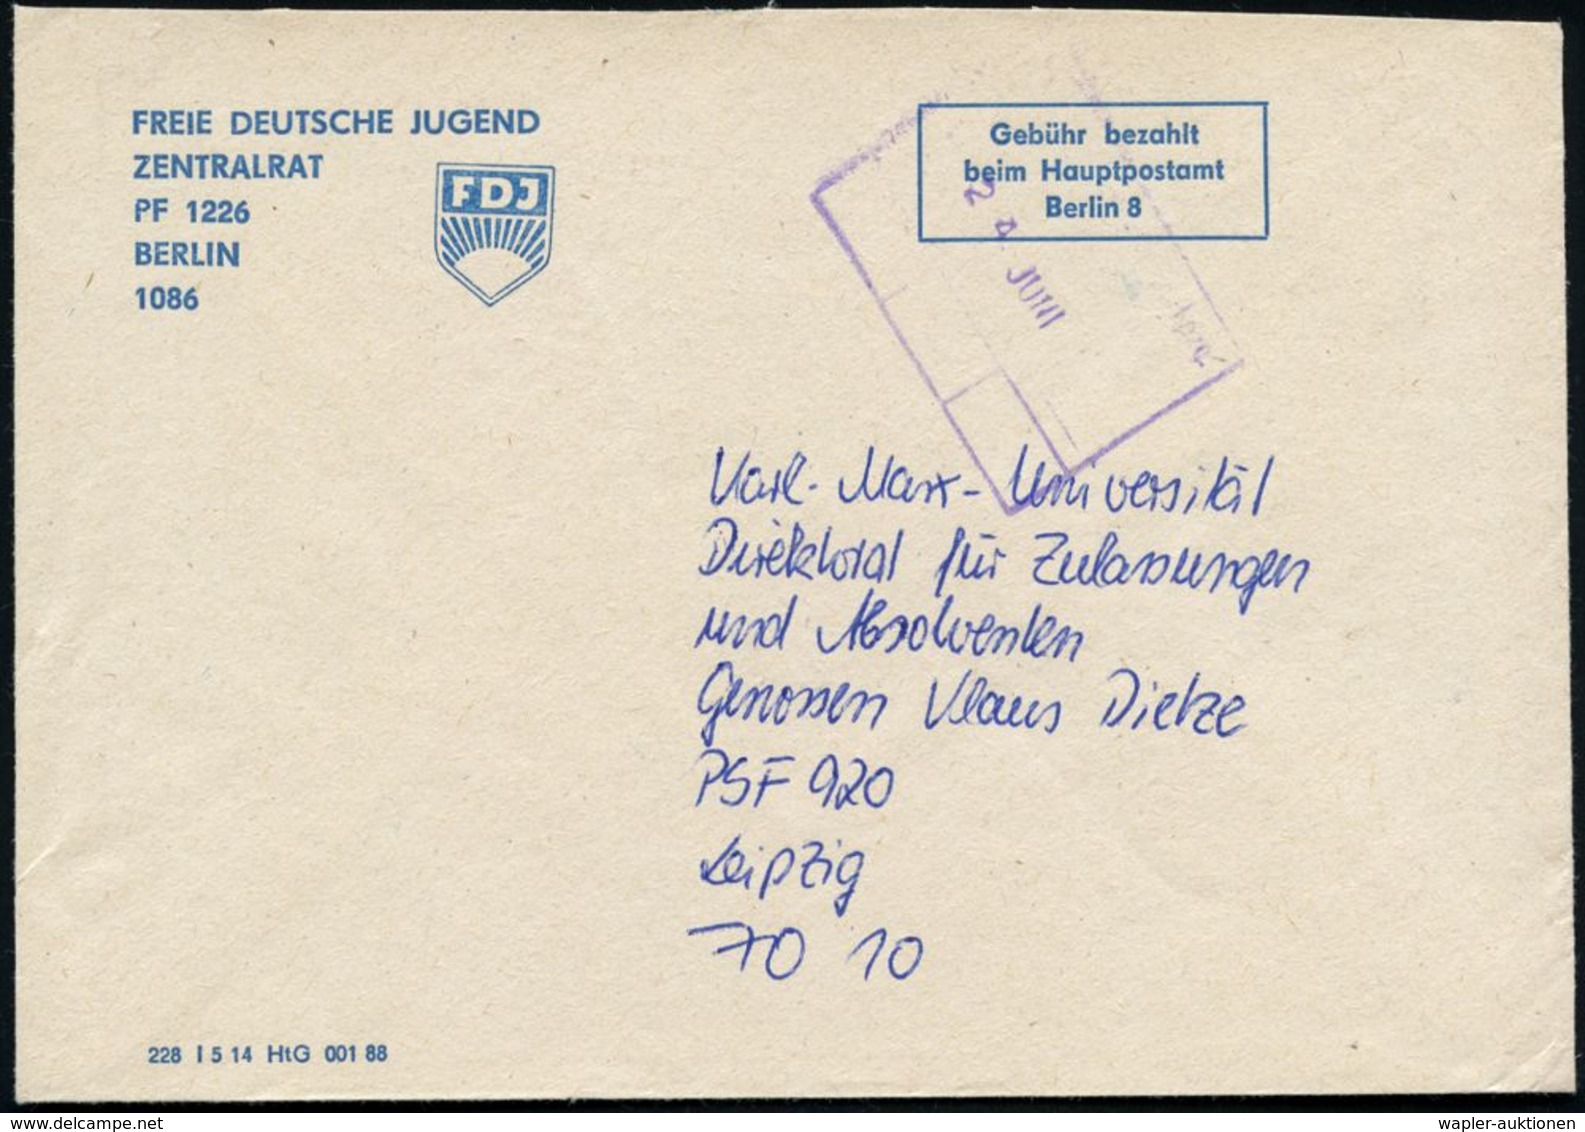 FREIE DEUTSCHE JUGEND
ZENTRALRAT
PF 1226
BERLIN
1086
FDJ
Gebühr bezahlt
beim Hauptpostamt
Berlin 8
24. JUNI
Karl-Marx-Universität
Direktorat für Zulassungen
und Absolventen
Genossen Klaus Dietze
PSF 920
Leipzig
70 10
228 I 5 14 HtG 001 88
wapler-auktionen